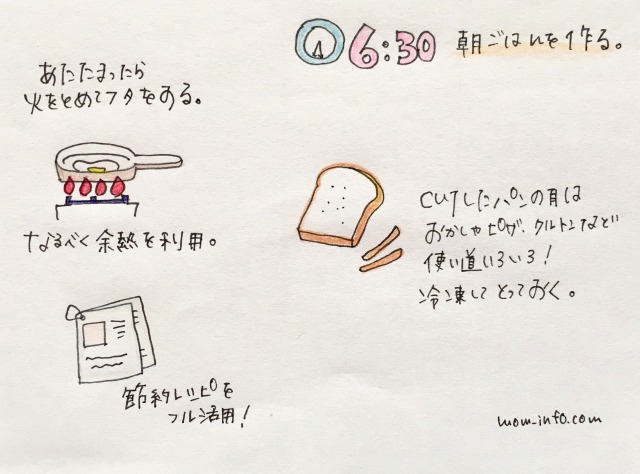 6:30 朝ごはんを作る。
あたたまったら
火をとめてフタをする。
なるべく余熱を利用。
CUTしたパンの耳は
おかしやピザ、クルトンなど
使い道いろいろ!
冷凍してとっておく。
節約レシピを
フル活用!
mom-info.com